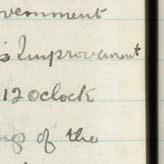 overnment
s Improvement
12 oclock
of the